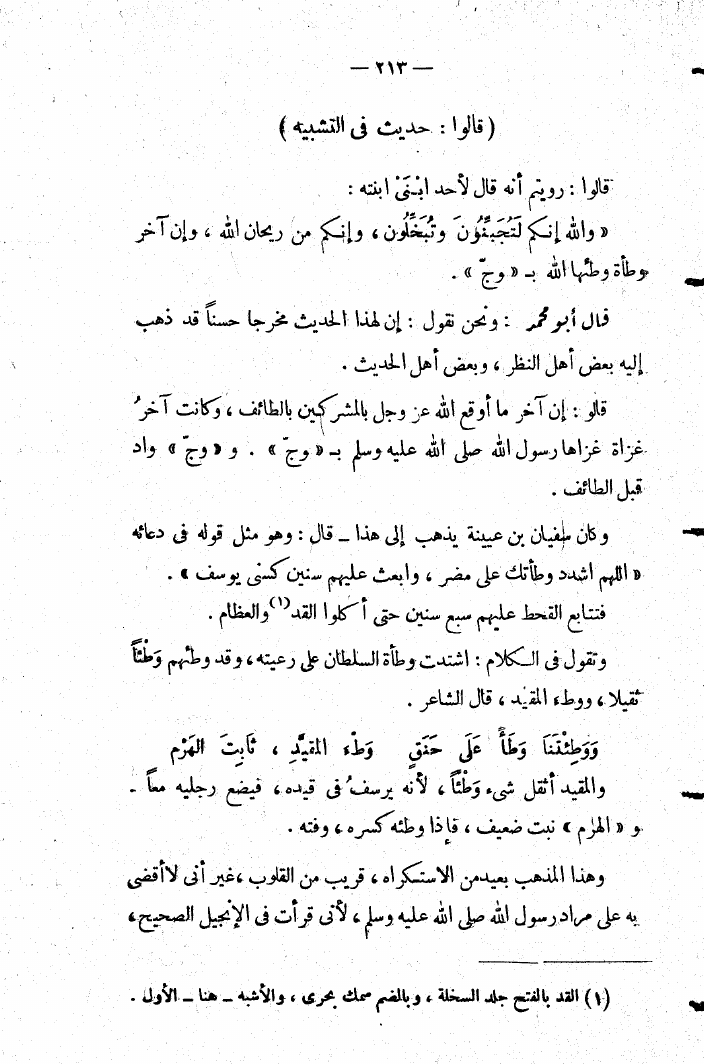 — ٢١٣ —
( قالوا : حديث فى التشبيه )
قالوا : رويتم أنه قال لأحد ابْـنَىْ ابنته :
« والله إنـكم لَتُجَبِّنُونَ وتُبَخِّلُون ، وإنـكم من ريحان الله ، وإن آخر
وطأة وطئها الله بـ « وجّ » .
قال أبو محمد : ونحن نقول : إن لهذا الحديث مخرجا حسناً قد ذهب
إليه بعض أهل النظر ، وبعض أهل الحديث .
قالو : إن آخر ما أوقع الله عز وجل بالمشركين بالطائف ، وكانت آخرُ
غزاة غزاها رسول الله صلى الله عليه وسلم بـ « وجّ » . و « وجّ » واد
قبل الطائف .
وكان سفيان بن عيينة يذهب إلى هذا ــ قال : وهو مثل قوله فى دعائه
« اللهم اشدد وطأتك على مضر ، وابعث عليهم سنين كسنى يوسف » .
فتتابع القحط عليهم سبع سنين حتى أكلوا القد(١) والعظام .
وتقول فى الـكلام : اشتدت وطأة السلطان على رعيته ، وقد وطئهم وَطْئاً
ثقيلا ، ووطء المقيد ، قال الشاعر .
وَوَطِئْتَنَا وَطَأً عَلَى حَنَقٍ وَطْءَ المقيَّدِ ، ثَابِتَ الهَرْم
والمقيد أثقل شىء وَطْئاً ، لأنه يرسفُ فى قيده ، فيضع رجليه معاً ــ
و « الهرم » نبت ضعيف ، فإذا وطئه كسره ، وفته .
وهذا المذهب بعيد من الاستكراه ، قريب من القلوب ، غير أنى لا أقضى
به على مراد رسول الله صلى الله عليه وسلم ، لأنى قرأت فى الإنجيل الصحيح ،
(١) القد بالفتح جلد السخلة ، وبالضم سمك بحرى ، والأشبه ــ هنا ــ الأول .